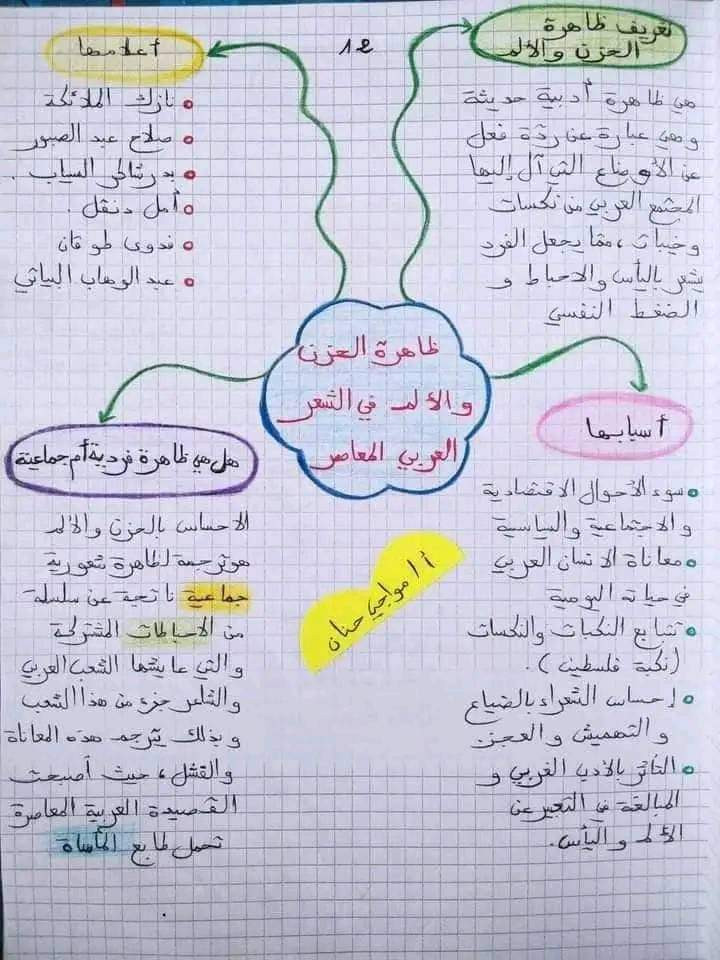 12
ظاهرة الحزن
والألم في الشعر
العربي المعاصر
تعريف ظاهرة
الحزن والألم
هي ظاهرة أدبية حديثة
وهي عبارة عن ردّة فعل
عن الأوضاع التي آل إليها
المجتمع العربي من نكسات
وخيبات، ممّا يجعل الفرد
يشعر باليأس والاحباط و
الضغط النفسي
أعلامها
نازك الملائكة
صلاح عبد الصبور
بدر شاكر السياب.
أمل دنقل.
فدوى طوقان
عبد الوهاب البياتي
أسبابها
سوء الأحوال الاقتصادية
والاجتماعية والسياسية
معاناة الانسان العربي
في حياته اليومية
تتابع النكبات والنكسات
(نكبة فلسطين).
إحساس الشعراء بالضياع
والتهميش والعجز.
التأثر بالأدب الغربي و
المبالغة في التعبير عن
الألم واليأس.
هل هي ظاهرة فردية أم جماعية
الاحساس بالحزن والألم
هو ترجمة لظاهرة شعورية
جماعية ناتجة عن سلسلة
من الاحباطات المشتركة
والتي عايشها الشعب العربي
والشاعر جزء من هذا الشعب
وبذلك يترجم هذه المعاناة
والفشل، حيث أصبحت
القصيدة العربية المعاصرة
تحمل طابع المأساة
أ/ مواجي حنان